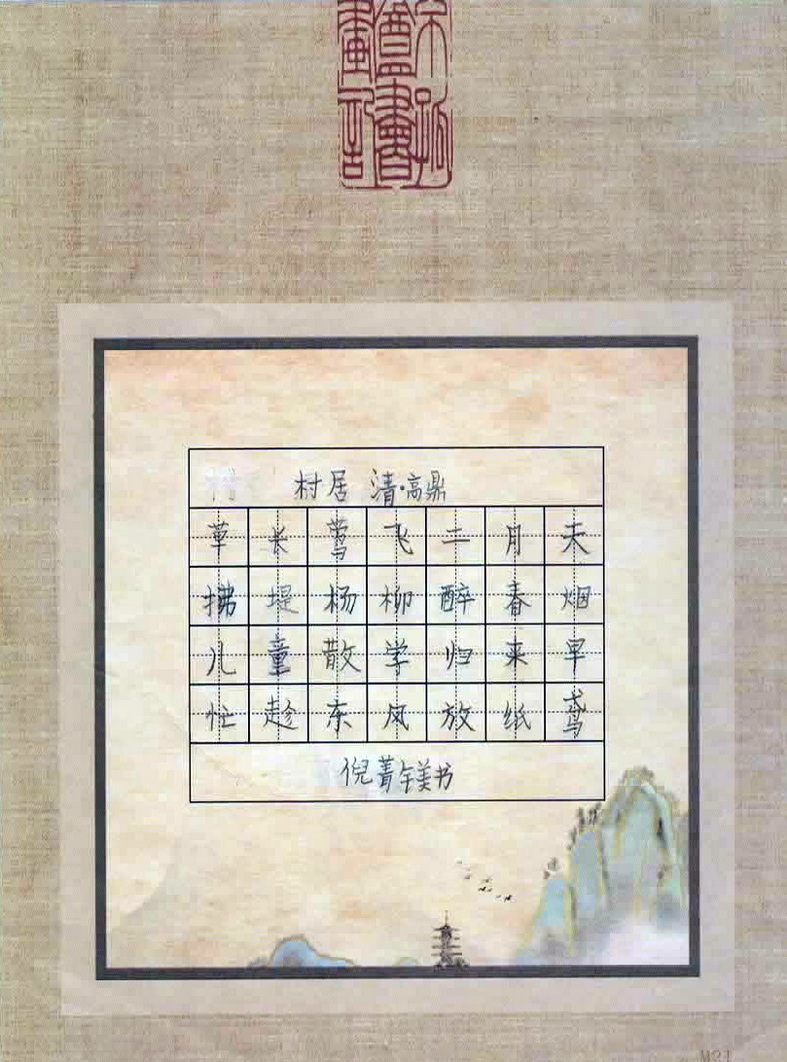 村居 清·高鼎
草长莺飞二月天
拂堤杨柳醉春烟
儿童散学归来早
忙趁东风放纸鸢
倪菁镁书